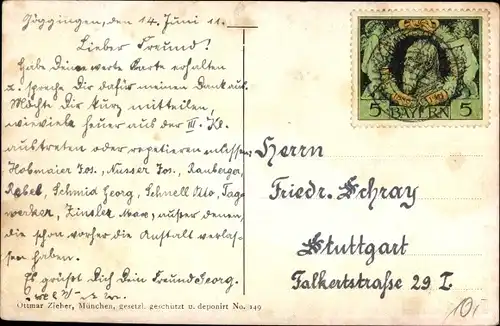 Göggingen, den 14. Juni 11.
Lieber Freund!
Habe Deine werte Karte erhalten
u. spreche Dir dafür meinen Dank aus.
Möchte Dir kurz mitteilen,
wieviele heuer aus der III. Kl.
austreten oder repetieren müssen:
Hobmaier Jos., Nusser Jos., Ranberger,
Rebel, Schmid Georg, Schnell Otto, Tag-
werker, Zinsler Max, außer denen,
die schon vorher die Anstalt verlas-
sen haben.
Es grüßt Dich Dein Freund Georg.
5 BAYERN 5
Herrn
Friedr. Schray
Stuttgart
Falkertstraße 29 I.
Ottmar Zieher, München, gesetzl. geschützt u. deponirt No. 249
10,-